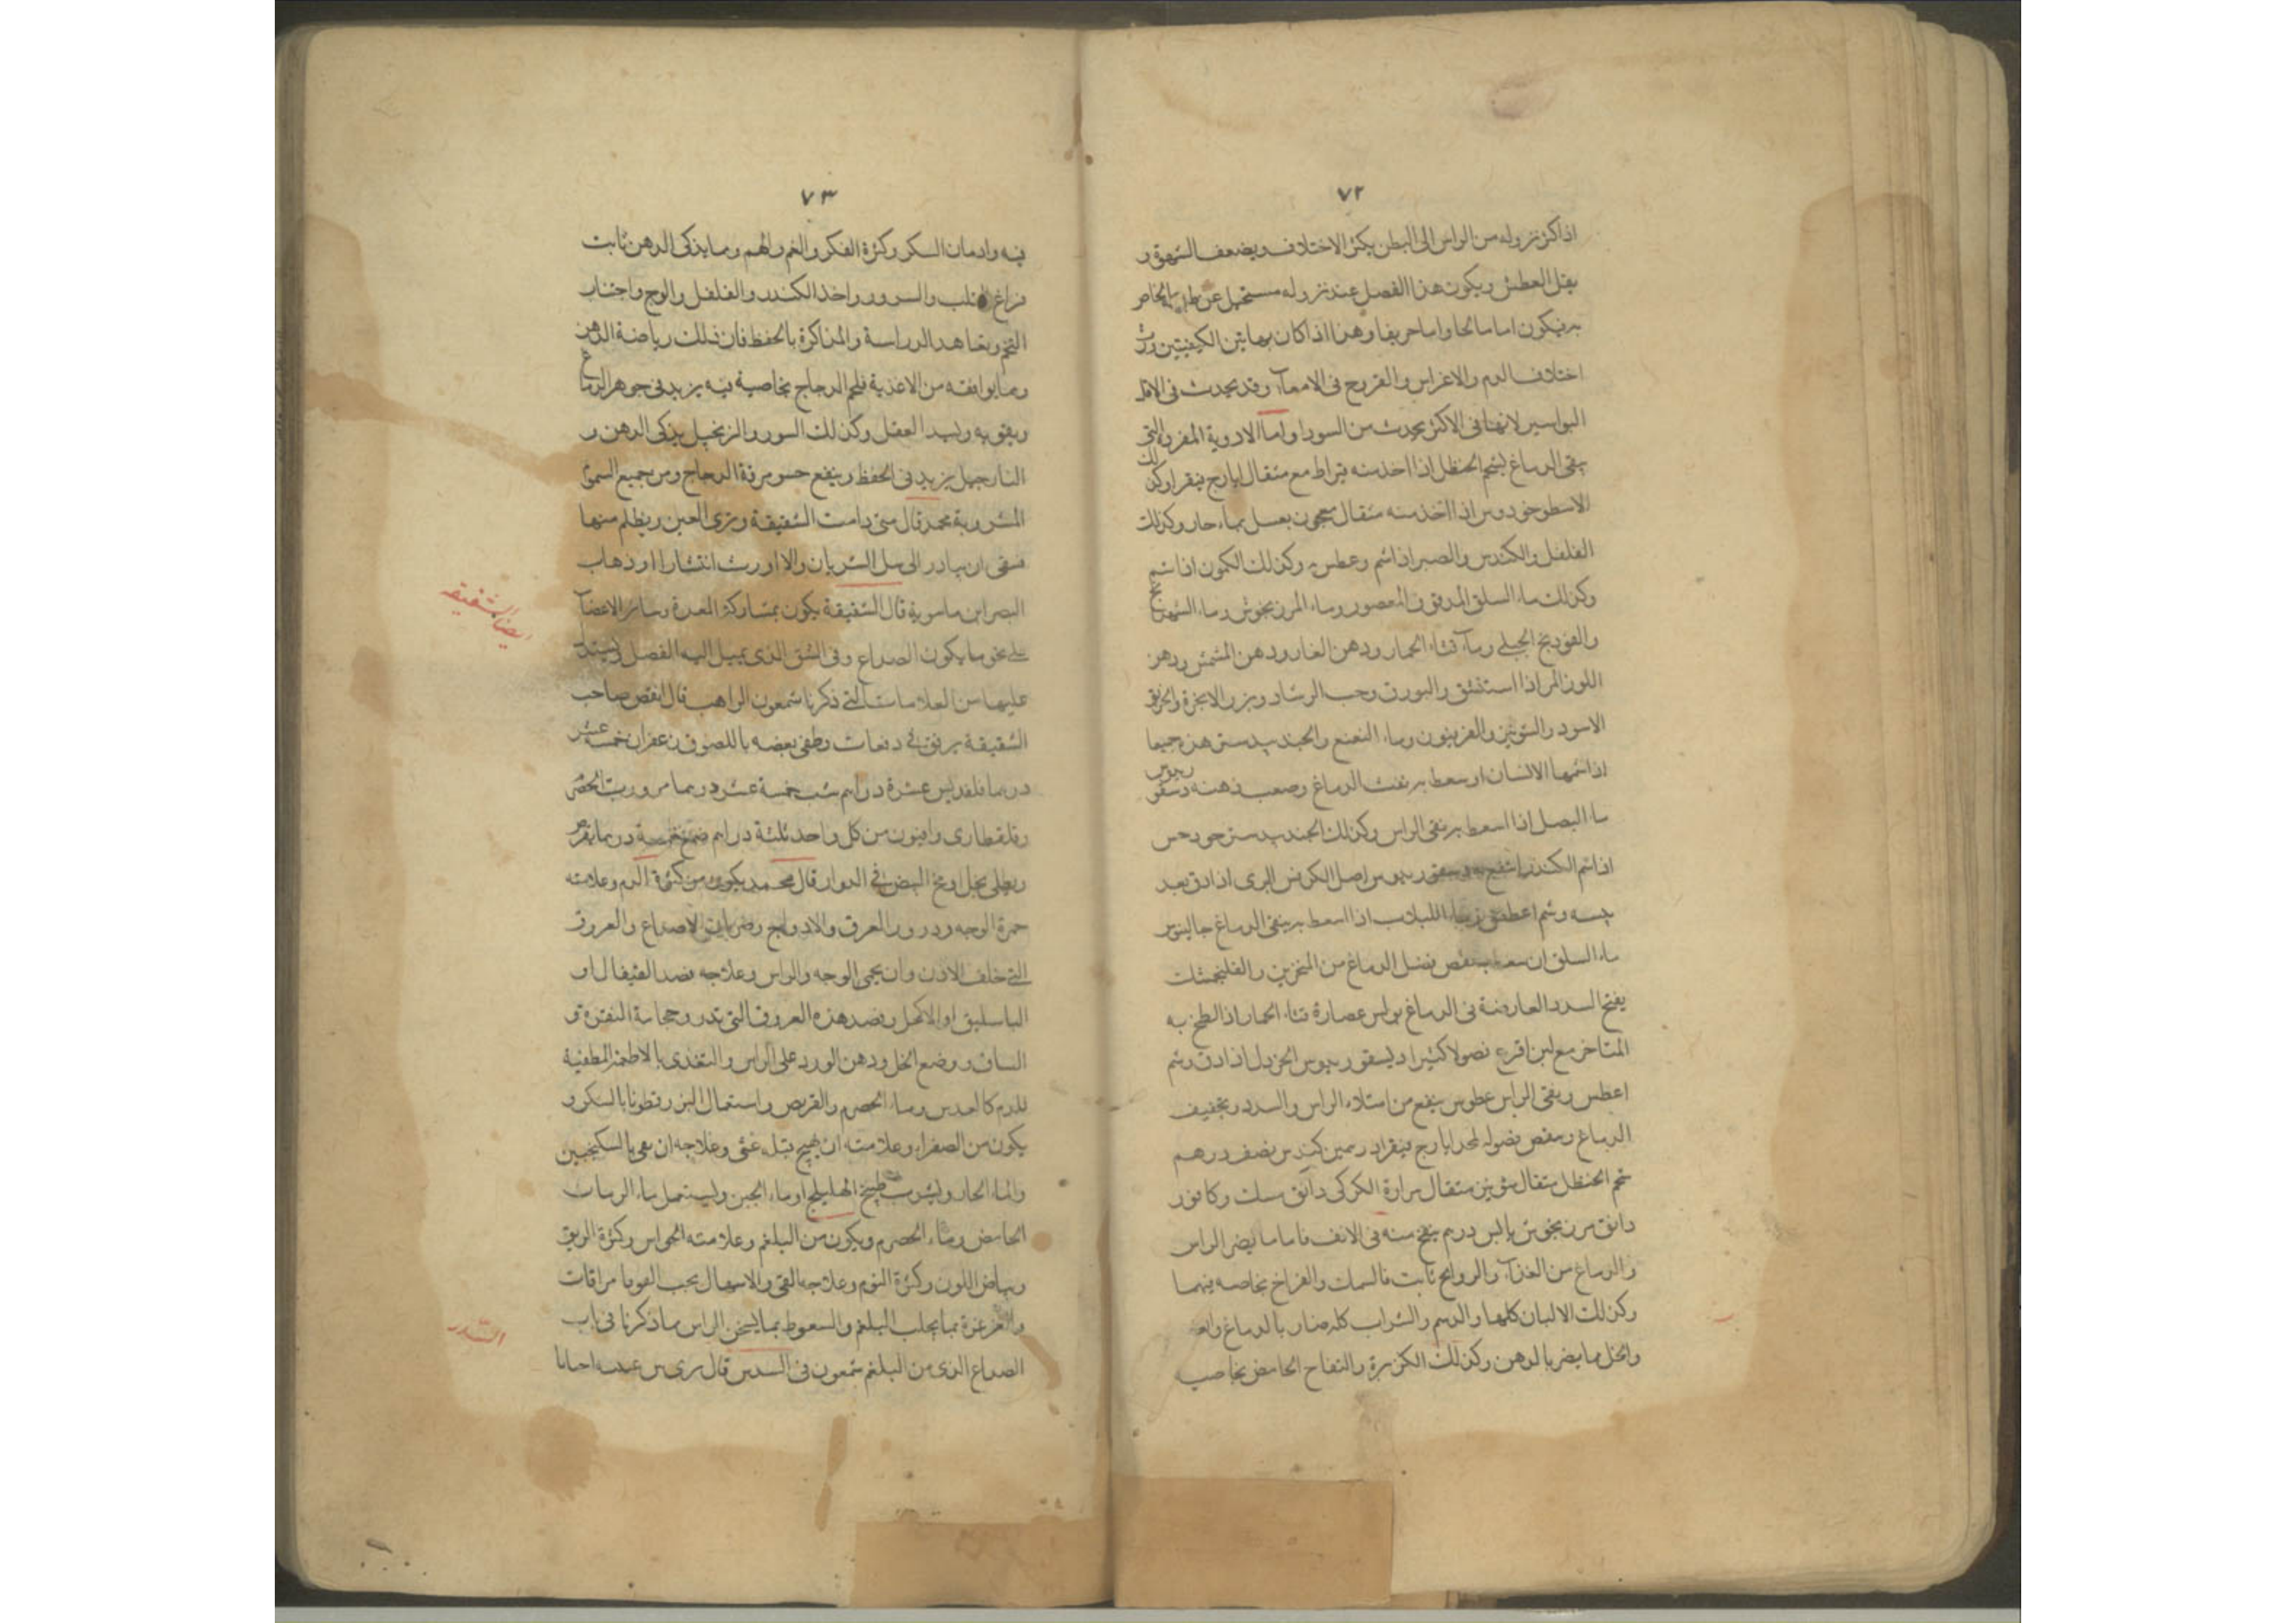 ٧٢
اذا كثر نزوله من الراس الى البطن يكثر الاختلاف ويضعف الشهوة و
يقل العطش ويكون هذا الفصل عند نزوله مستحيل عن
فيكون اما مالحا واما حريفا وهذا اذا كان بهاتين الكيفيتين
اختلاف الدم والاغراس والقروح فى الامعاء وقد يحدث فى
البواسير لانها فى الاكثر يحدث من السودا واما الادوية المفردة التى
ينقى الدماغ شحم الحنظل اذا اخذ منه قيراط مع مثقال ايارج فيقرا وكذلك
الاسطوخودوس اذا اتخذ منه مثقال معجون بعسل بماء حار وكذلك
الفلفل والكندس والصبر اذا شم وعطس به وكذلك الكمون اذا شم
وكذلك ماء السلق المدقوق المعصور وماء المرزنجوش وماء
والفودنج الجبلى وماء قثاء الحمار ودهن الغار ودهن المشمش ودهن
اللوز المر اذا استنشق والبورق وحب الرشاد وبزر الانجرة والخربق
الاسود والشونيز والفربيون وماء النعنع والجندبيدستر هذه جميعا
اذا شمها الانسان او سعط بر نفث الدماغ وصعب ذهنه دسقوريدوس
ماء البصل اذا اسعط بر نقى الراس وكذلك الجندبيدستر
اذا شم الكندر انتفع به دسقوريدوس اصل الكرفس البرى اذا دق بعد
يبسه وشم اعطس وماء اللبلاب اذا اسعط بر ينقى الدماغ جالينوس
ماء السلق ان سعط به نقص فضل الدماغ من المنخرين والفلنجمشك
يفتح السدد العارضة فى الدماغ بولس عصارة قثاء الحمار اذا لطخ به
المناخر مع لبن افرغ فضولا كثيرا ديسقوريدوس الخردل اذا دق وشم
اعطس ونقى الراس عطوس ينفع من امتلاء الراس والسدد وتجفيف
الدماغ ونقص فضوله ايارج فيقرا درهمين كندس نصف درهم
شحم الحنظل مثقال شونيز مثقال مرارة الكركى دانق مسك وكافور
دانق مرزنجوش يابس درهم ينفخ منه فى الانف فاما ما يضر الراس
والدماغ من الغذاء والروايح ثابت فالسمك والفراخ بخاصه فيهما
وكذلك الالبان كلها والدسم والشراب كله ضار بالدماغ
والخل مما يضر بالذهن وكذلك الكزبرة والتفاح الحامض بخاصيه
٧٣
فيه وادمان السكر وكثرة الفكر والغم والهم وما يذكى الذهن ثابت
فراغ القلب والسرور واخذ الكندر والفلفل والوج واجتناب
التخم وتعاهد الدراسة والمذاكرة بالحفظ فان ذلك رياضة الذهن
وما يوافقه من الاغذية فلحم الدجاج بخاصية فيه يزيد فى جوهر الدماغ
ويقويه وليد العقل وكذلك السور والزنجبيل يذكى الذهن و
النارجيل يزيد فى الحفظ وينفع حسو مرقة الدجاج ومن جميع السموم
المشروبة محمد قال متى دامت الشقيقة وترى العين ويظلم منها
فينبغى ان يبادر الى سل الشريان والا اورث انتشارا او ذهاب
البصر ابن ماسويه قال الشقيقة يكون بمشاركة المعدة وسائر الاعضاء
على نحو ما يكون الصداع وفى الشق الذى يميل اليه الفصل ويستدل
عليها من العلامات التى ذكرنا شمعون الراهب قال انقص صاحب
الشقيقة برفق فى دفعات وطفى بعضه باللصوق زعفران خمسة عشر
درهما قلقديس عشرة دراهم شب خمسة عشر درهما مر وربّ الحصرم
وقلقطار وافيون من كل واحد ثلثة دراهم صمغ خمسة درهما يقرص
ويطلى بخل او مخ البيض فى الدوار قال محمد يكون من كثرة الدم وعلامته
حمرة الوجه ودرور العرق والاوداج وضربان الاصداغ والعروق
التى خلف الاذن وان يحمى الوجه والراس وعلاجه فصد القيفال او
الباسليق او الاكحل وفصد هذه العروق التى تدر وحجامة النقرة و
الساق ووضع الخل ودهن الورد على الراس والتغذى بالاطعمة المطفية
للدم كالعدس وماء الحصرم والقريص واستعمال البزرقطونا بالسكر و
يكون من الصفراء وعلامته ان يهيج قبله غثى وعلاجه ان يقى بالسكنجبين
والماء الحار ويشرب طبيخ الهليلج او ماء الجبن وليستعمل ماء الرمان
الحامض وماء الحصرم ويكون من البلغم وعلامته الحواس وكثرة الريق
وبياض اللون وكثرة النوم وعلاجه القى والاسهال بحب القوقايا مرات
والغرغرة بما يجلب البلغم والسعوط بما يسخن الراس بما ذكرنا فى باب
الصداع الذى من البلغم شمعون فى السدر قال يرى بين عينيه احيانا
ايضا الشقيقه
السدر